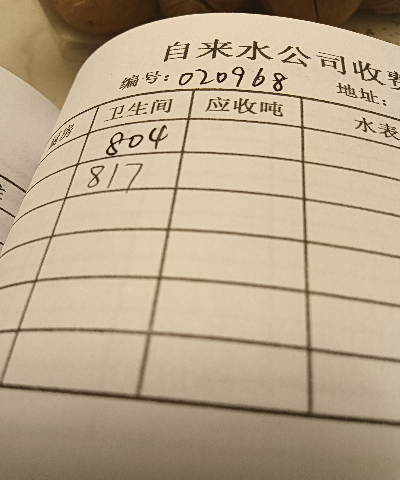 自来水公司收费
编号:020968 地址:
厨房 卫生间 应收吨 水表
804
817